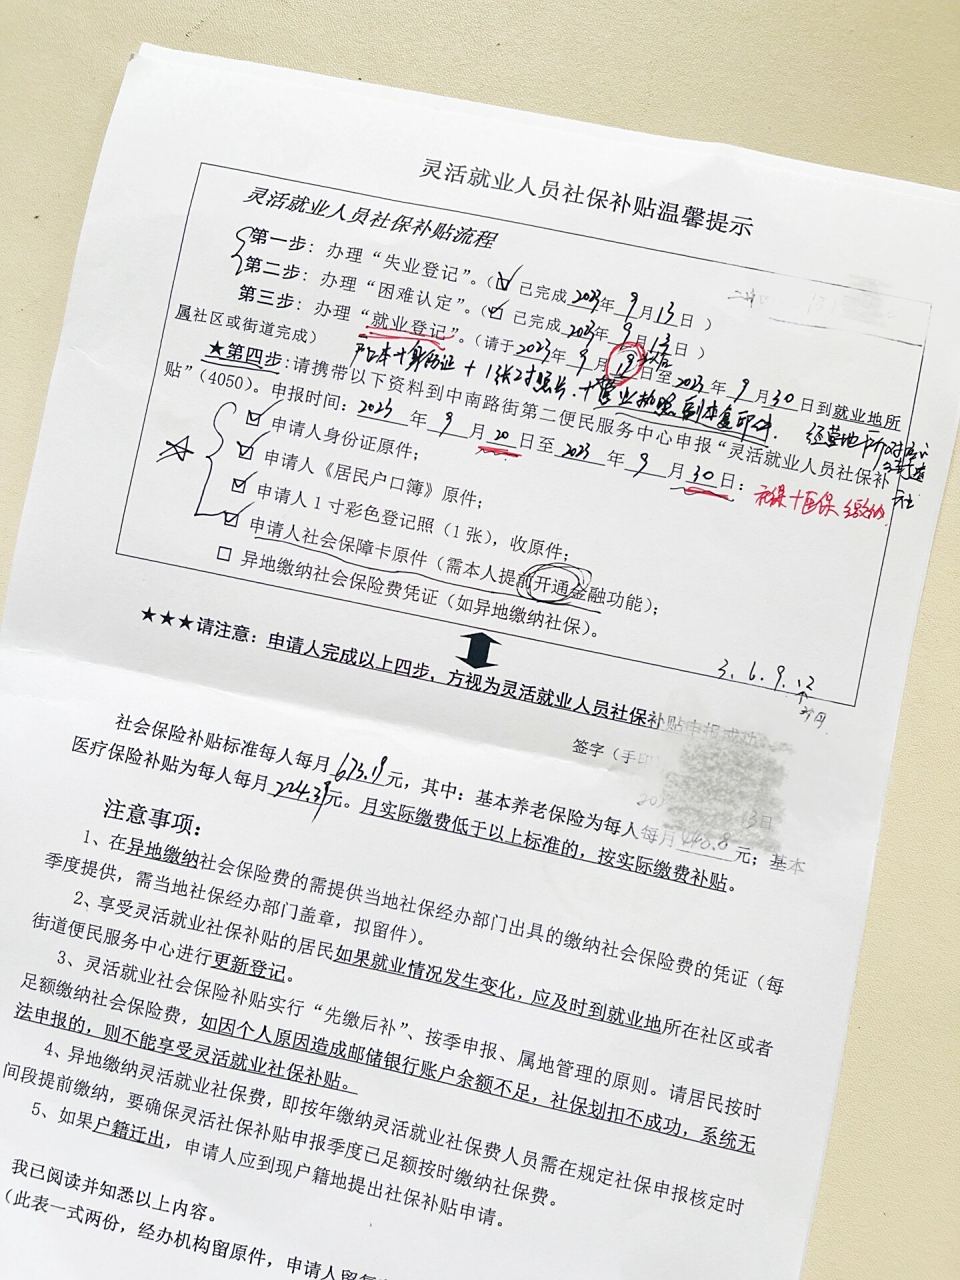 灵活就业人员社保补贴温馨提示
灵活就业人员社保补贴流程
第一步：办理“失业登记”。（☑已完成2023年9月13日）
第二步：办理“困难认定”。（☑已完成2023年9月13日）
第三步：办理“就业登记”。（请于2023年9月19日至2023年9月30日到就业地所
属社区或街道完成）
户口本+身份证+1张2寸照片.+营业执照副本复印件.
★第四步：请携带以下资料到中南路街第二便民服务中心申报“灵活就业人员社保补
贴”（4050）。申报时间：2023年9月20日至2023年9月30日：
社保+医保缴纳
☑ 申请人身份证原件；
☑ 申请人《居民户口簿》原件；
☑ 申请人1寸彩色登记照（1张），收原件；
☑ 申请人社会保障卡原件（需本人提前开通金融功能）；
☐ 异地缴纳社会保险费凭证（如异地缴纳社保）。
3.6.9.12
★★★请注意：申请人完成以上四步，方视为灵活就业人员社保补贴申报成功
签字（手印
13日
社会保险补贴标准每人每月673.19元，其中：基本养老保险为每人每月448.8元；基本
医疗保险补贴为每人每月224.39元。月实际缴费低于以上标准的，按实际缴费补贴。
注意事项：
1、在异地缴纳社会保险费的需提供当地社保经办部门出具的缴纳社会保险费的凭证（每
季度提供，需当地社保经办部门盖章，拟留件）。
2、享受灵活就业社保补贴的居民如果就业情况发生变化，应及时到就业地所在社区或者
街道便民服务中心进行更新登记。
3、灵活就业社会保险补贴实行“先缴后补”、按季申报、属地管理的原则。请居民按时
足额缴纳社会保险费，如因个人原因造成邮储银行账户余额不足，社保划扣不成功，系统无
法申报的，则不能享受灵活就业社保补贴。
4、异地缴纳灵活就业社保费，即按年缴纳灵活就业社保费人员需在规定社保申报核定时
间段提前缴纳，要确保灵活社保补贴申报季度已足额按时缴纳社保费。
5、如果户籍迁出，申请人应到现户籍地提出社保补贴申请。
我已阅读并知悉以上内容。
（此表一式两份，经办机构留原件，申请人留复